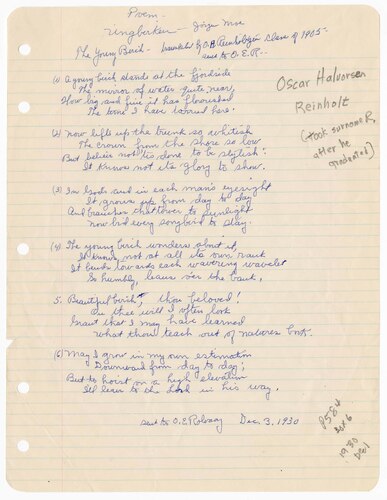 Poem.
Ungbirken - Jörgen Moe
The Young Birch - translated by O.H. Reinholt, Class of 1905.
sent to O.E.R.
Oscar Halvorsen
Reinholt
(took surname R,
after he
graduated)
(1) A young birch stands at the fjordside
The mirror of water quite near,
How big and fine it has flourished
The time I have tarried here.
(2) Now lifts up the trunk so whitish
The crown from the shore so low
But believe not 'tis done to be stylish:
It knows not its glory to show.
(3) In God's and in each man's eyesight
It grows up from day to day
And branches that tower to sunlight
now bid every songbird to play.
(4) The young birch wonders about it,
It knows not at all its own rank
It bends towards each wavering wavelet
So humbly, leans over the bank.
5. Beautiful birch, thou beloved!
On thee will I often look
In aut that I may have learned
What thou teach out of natures book.
(6) May I grow in my own estimation
Downward from day to day;
But to hoist on a high elevation
I'll leave to the Lord in his way.
sent to O.E. Rolvaag Dec. 3, 1930
P584
Box 6
1930
Dec 1